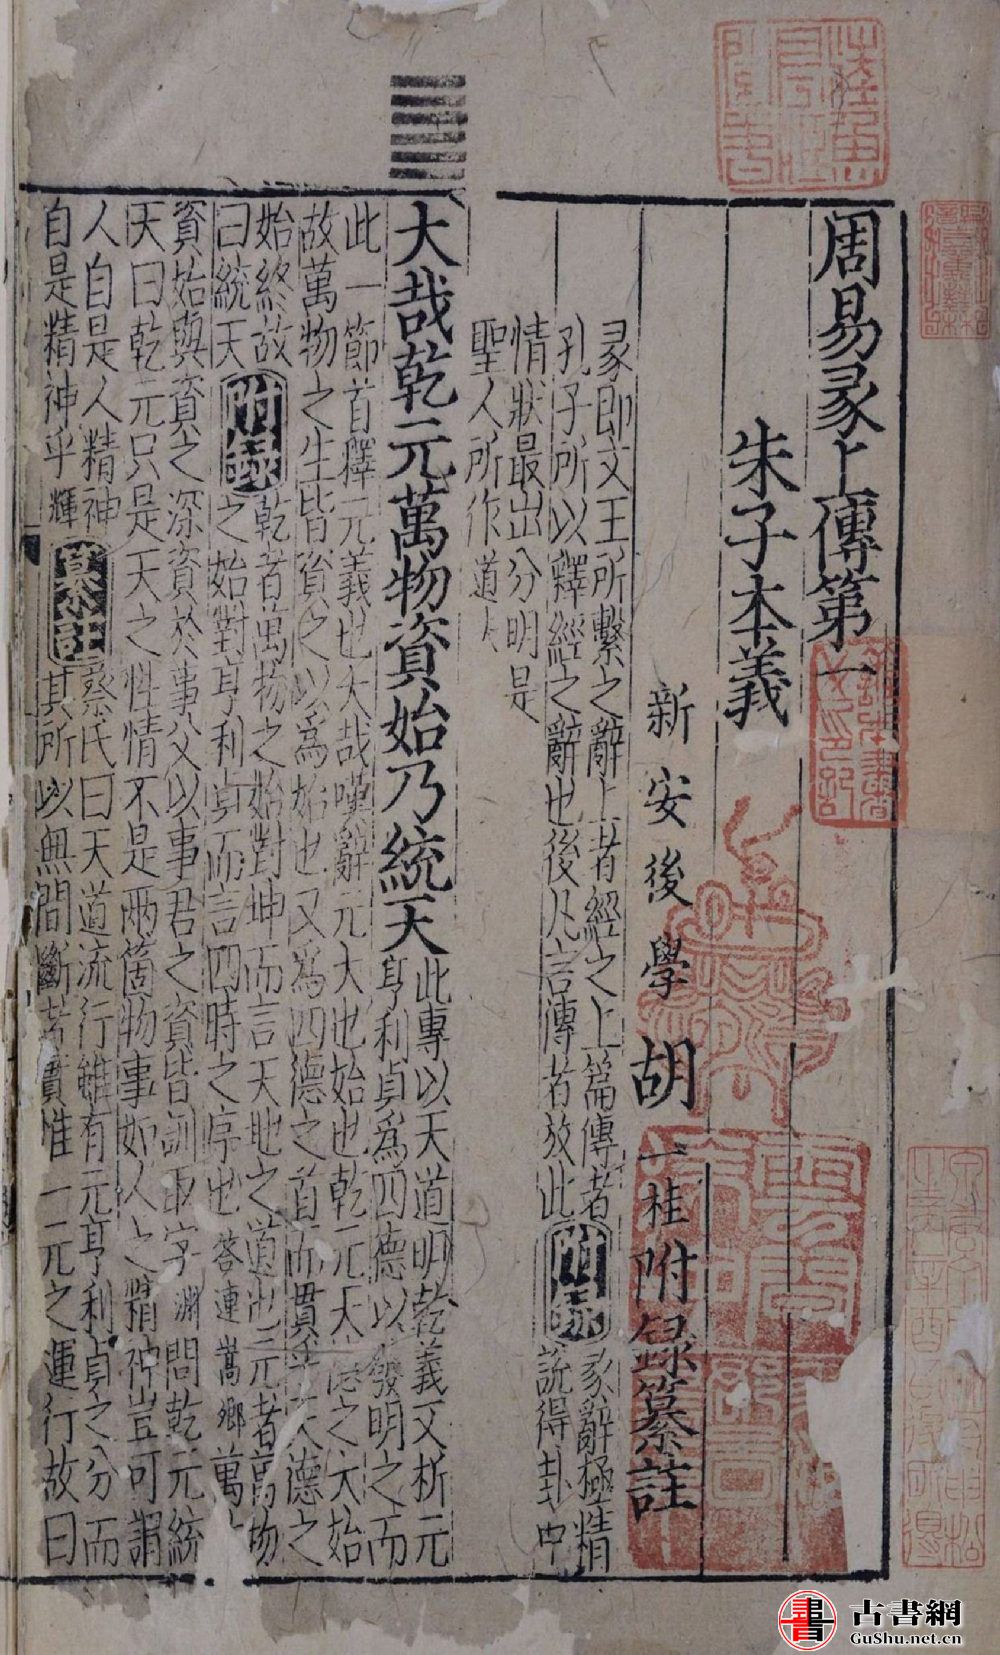 周易彖上傳第一
朱子本義
新安後學胡一桂附録纂註
彖即文王所繫之辭上者經之上篇傳者
孔子所以釋經之辭也後凡言傳者放此
附録
彖辭極精
說得卦中
情狀最出分明是
聖人所作道人
大哉乾元萬物資始乃統天
此專以天道明乾義又析元
亨利貞爲四德以發明之而
此一節首釋元義也大哉嘆辭元大也始也乾元天德之大始
故萬物之生皆資之以爲始也又爲四德之首而貫乎天德之
始終故曰統天
附録
乾者萬物之始對坤而言天地之道也元者萬物
之始對亨利貞而言四時之序也答連嵩鄉萬物
資始與資之深資於事父以事君之資皆訓取字淵問乾元統
天曰乾元只是天之性情不是兩箇物事如人之精神豈可謂
人自是人精神
自是精神乎輝
纂註
蔡氏曰天道流行雖有元亨利貞之分而
其所以無間斷者實惟一元之運行故曰
古書網
GuShu.net.cn